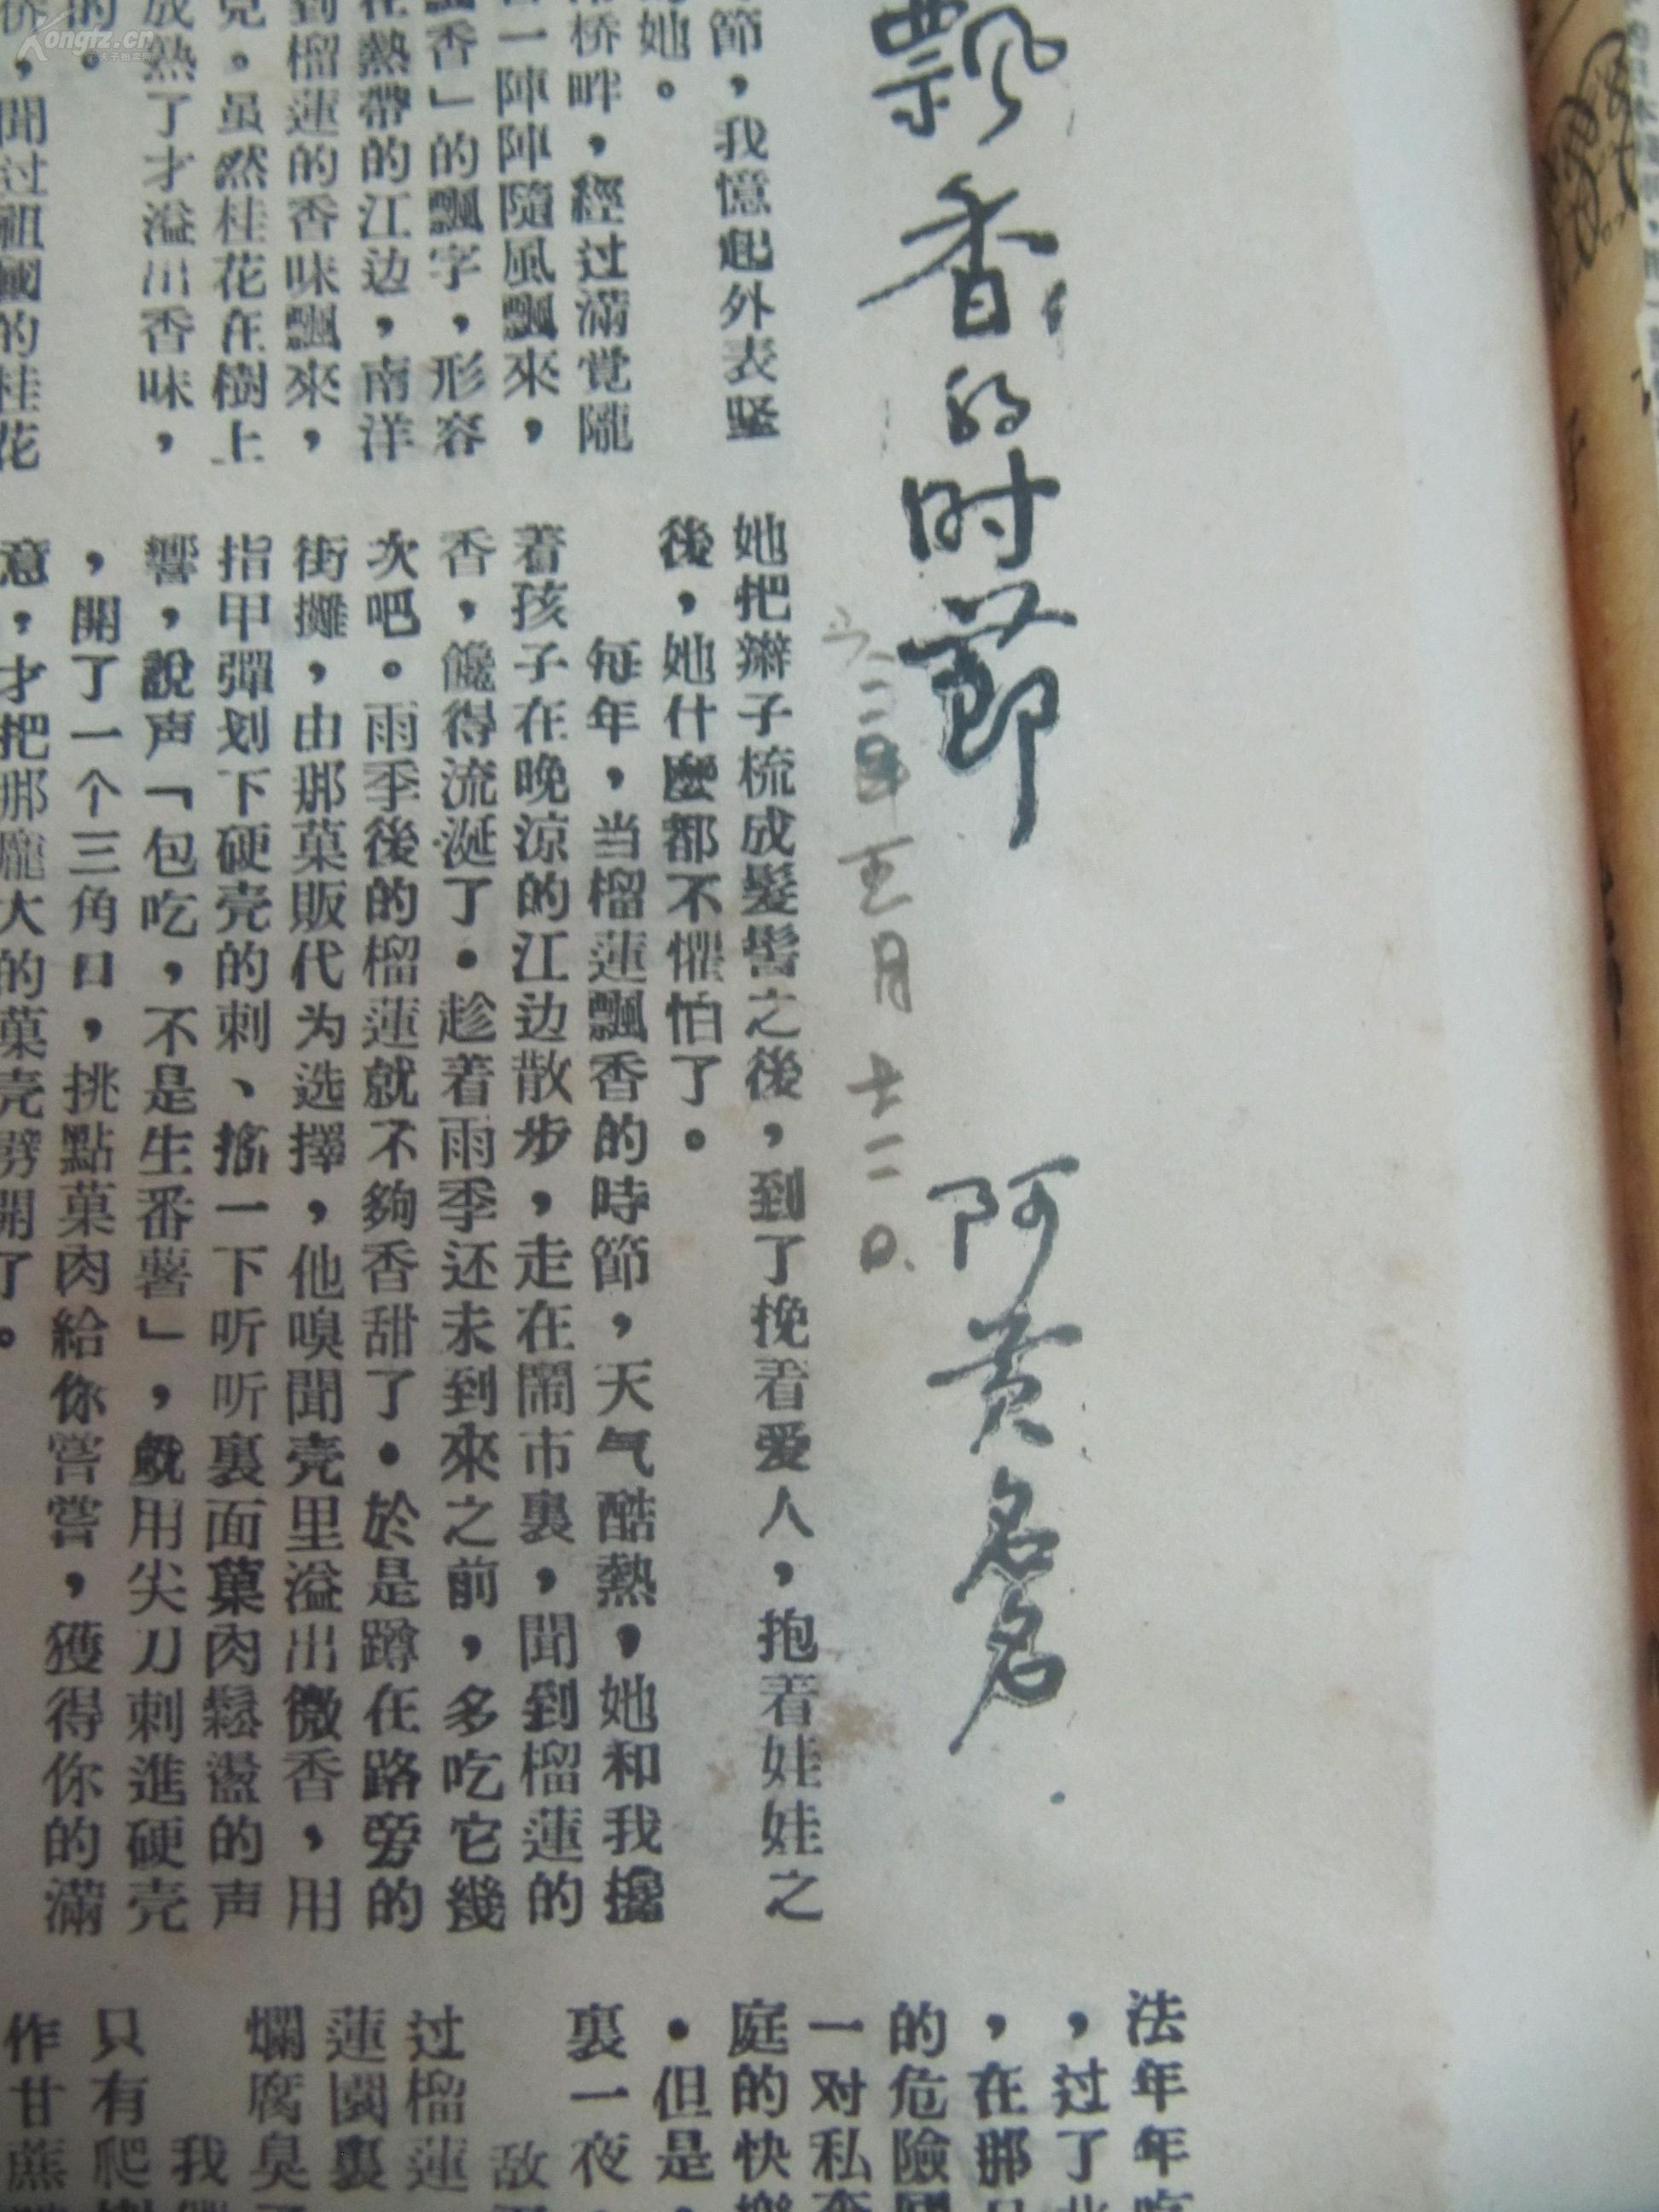 飘香的时節
阿黄名名
六二年五月十二日.
節，我憶起外表堅
她。
桥畔，經过滿覚隴
一陣陣隨風飄來，
香」的飄字，形容
在熱帶的江边，南洋
到榴蓮的香味飄來，
兒。虽然桂花在樹上
成熟了才溢出香味，
的。
，聞过祖國的桂花
她把辮子梳成髮髻之後，到了挽着爱人，抱着娃娃之
後，她什麼都不懼怕了。
每年，当榴蓮飄香的時節，天气酷熱，她和我攙
着孩子在晚凉的江边散步，走在鬧市裏，聞到榴蓮的
香，饞得流涎了。趁着雨季还未到來之前，多吃它幾
次吧。雨季後的榴蓮就不夠香甜了。於是蹲在路旁的
街攤，由那菓販代为选擇，他嗅聞壳里溢出微香，用
指甲彈划下硬壳的刺、搖一下听听裏面菓肉鬆盪的声
響，說声「包吃，不是生番薯」，就用尖刀刺進硬壳
，開了一个三角口，挑點菓肉給你嘗嘗，獲得你的滿
意，才把那龐大的菓壳劈開了。
法年年吃
，过了
，在那
的危險國
一对私奔
庭的快樂
。但是，
裏一夜
敌
过榴蓮
蓮園裏
爛腐臭
我
只有爬
作甘蔗
Kongfz.cn